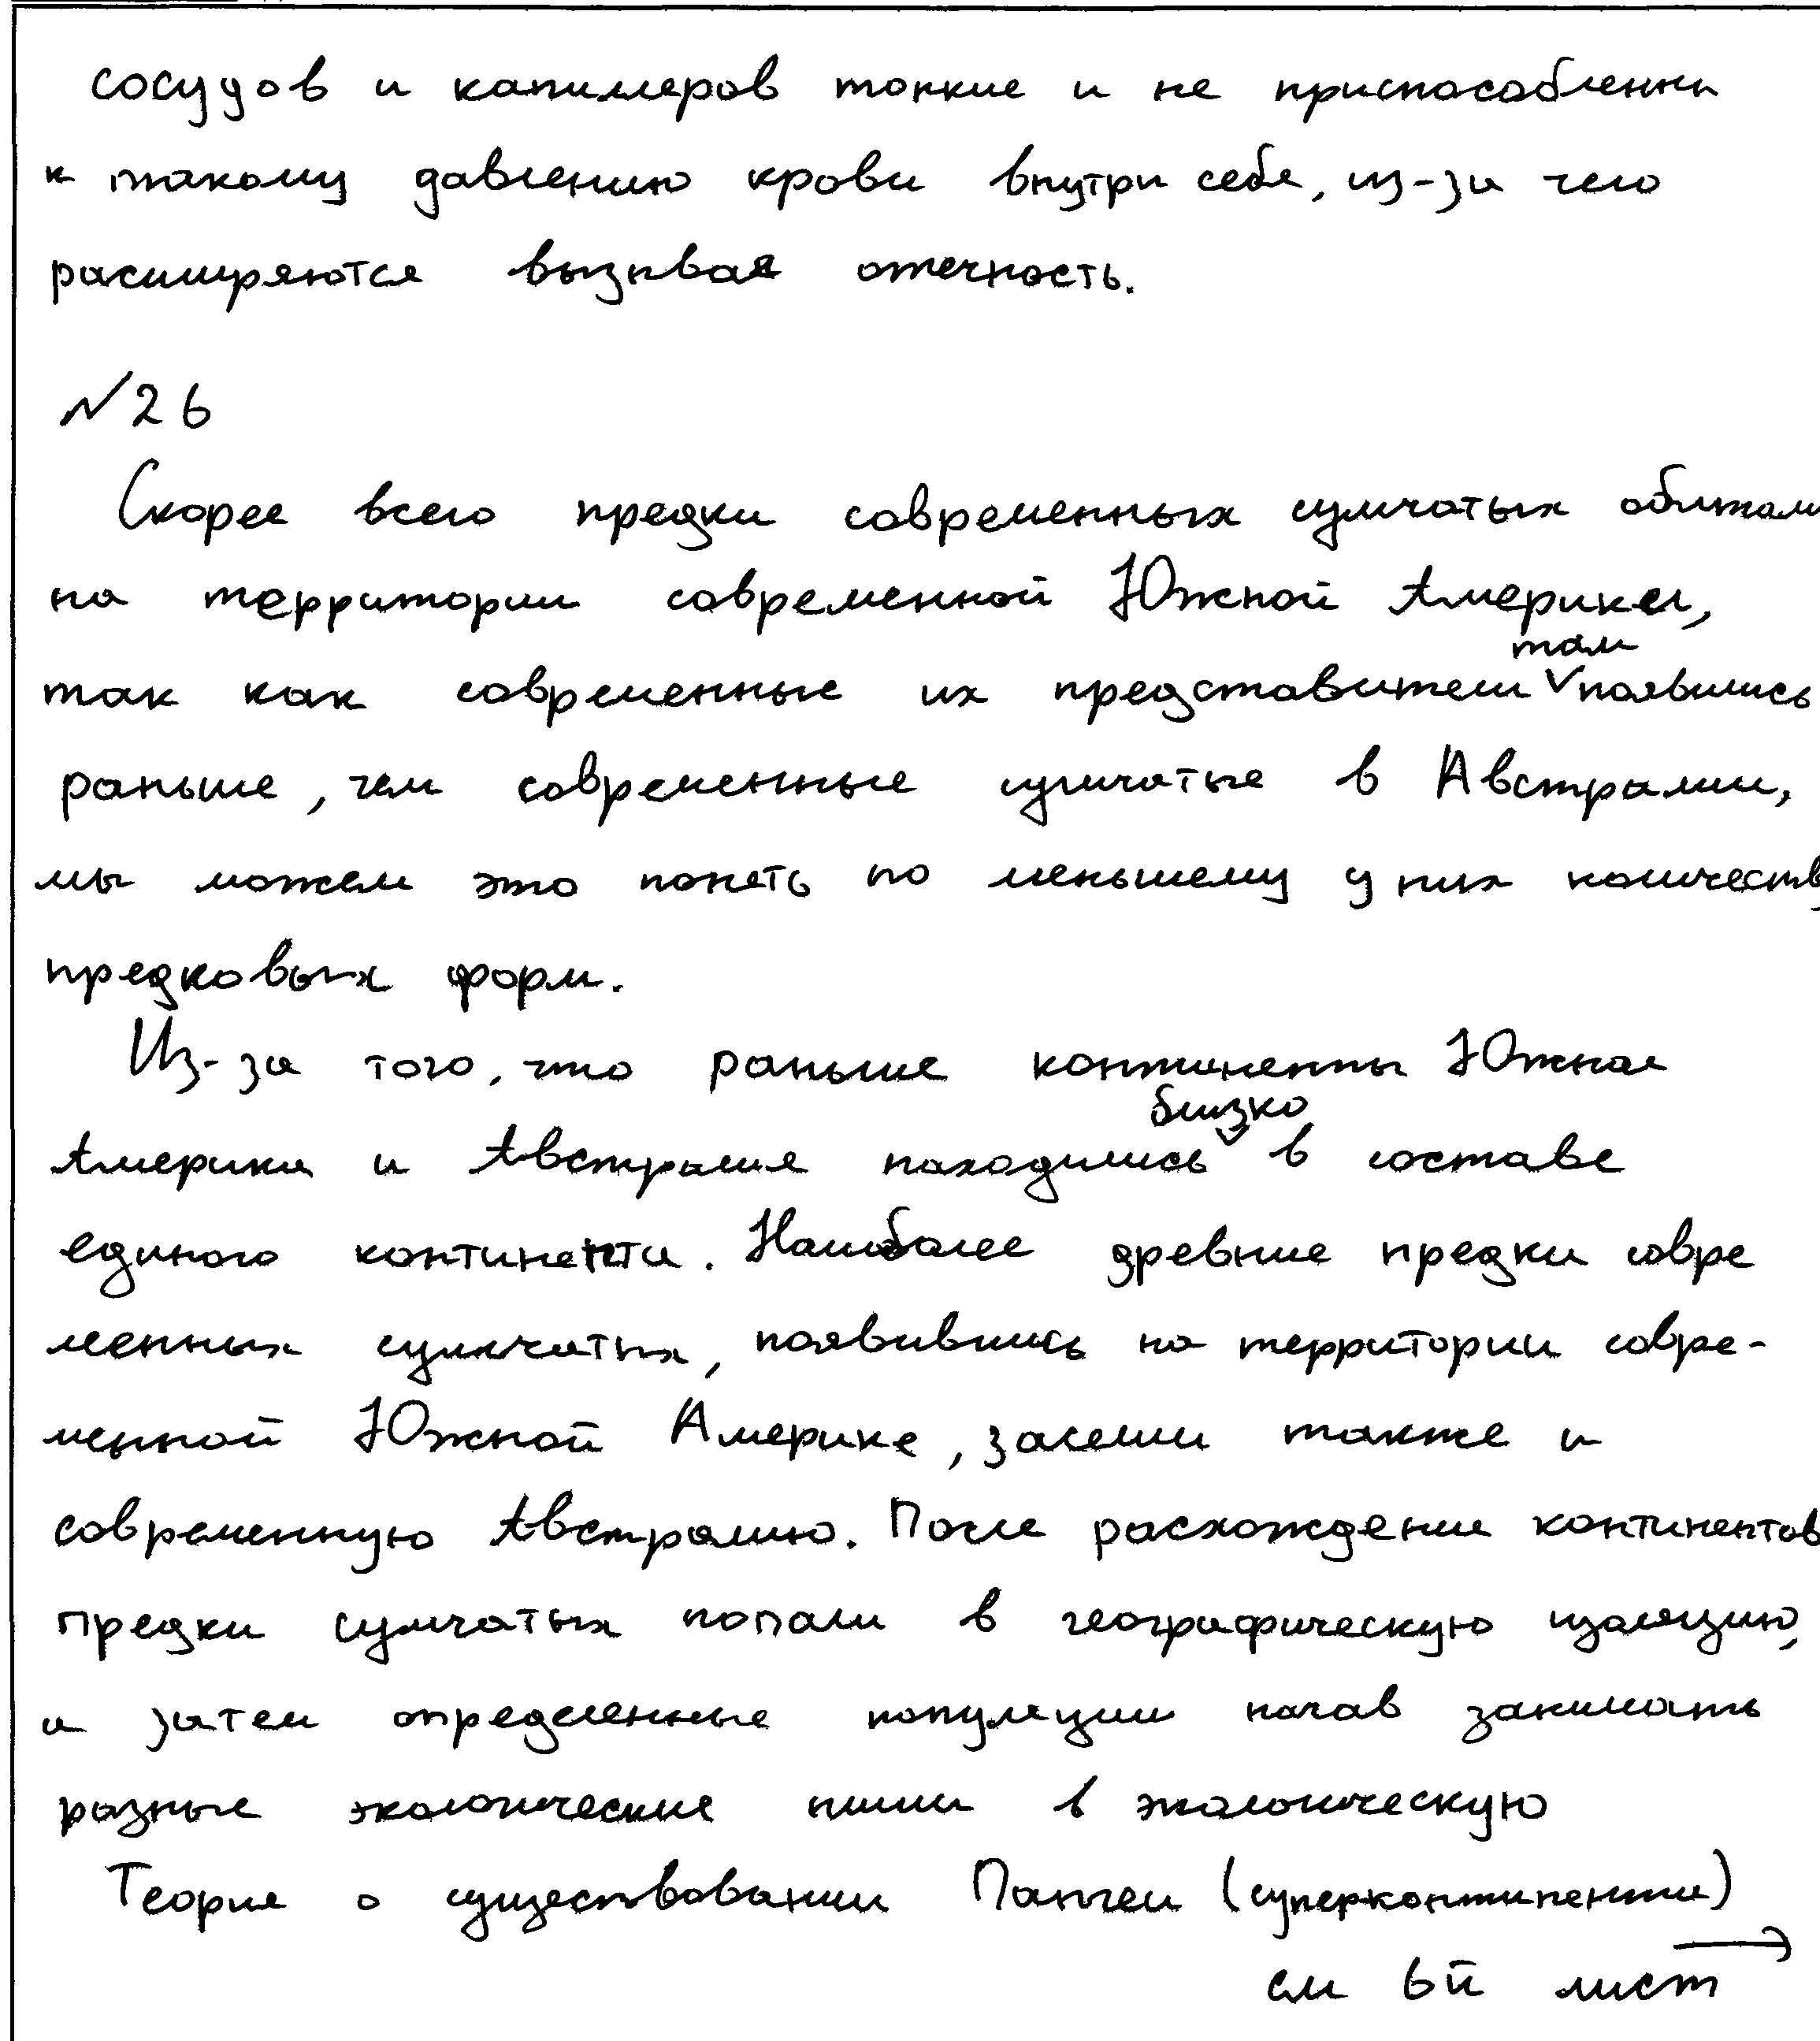 сосудов и капилляров тонкие и не приспособленны
к такому давлению крови внутри себя, из-за чего
расширяются вызывая отечность.
№26
Скорее всего предки современных сумчатых обитали
на территории современной Южной Америки,
так как современные их представители там появились
раньше, чем современные сумчатые в Австралии,
мы можем это понять по меньшему у них количеству
предковых форм.
Из-за того, что раньше континенты Южная
Америка и Австралия находились близко в составе
единого континента. Наиболее древние предки совре
менных сумчатых, появившись на территории совре-
менной Южной Америке, заселили также и
современную Австралию. После расхождения континентов
предки сумчатых попали в географическую изоляцию,
а затем определенные популяции начав занимать
разные экологические ниши в экологическую
Теория о существовании Пангеи (суперконтинента)
см 6й лист →